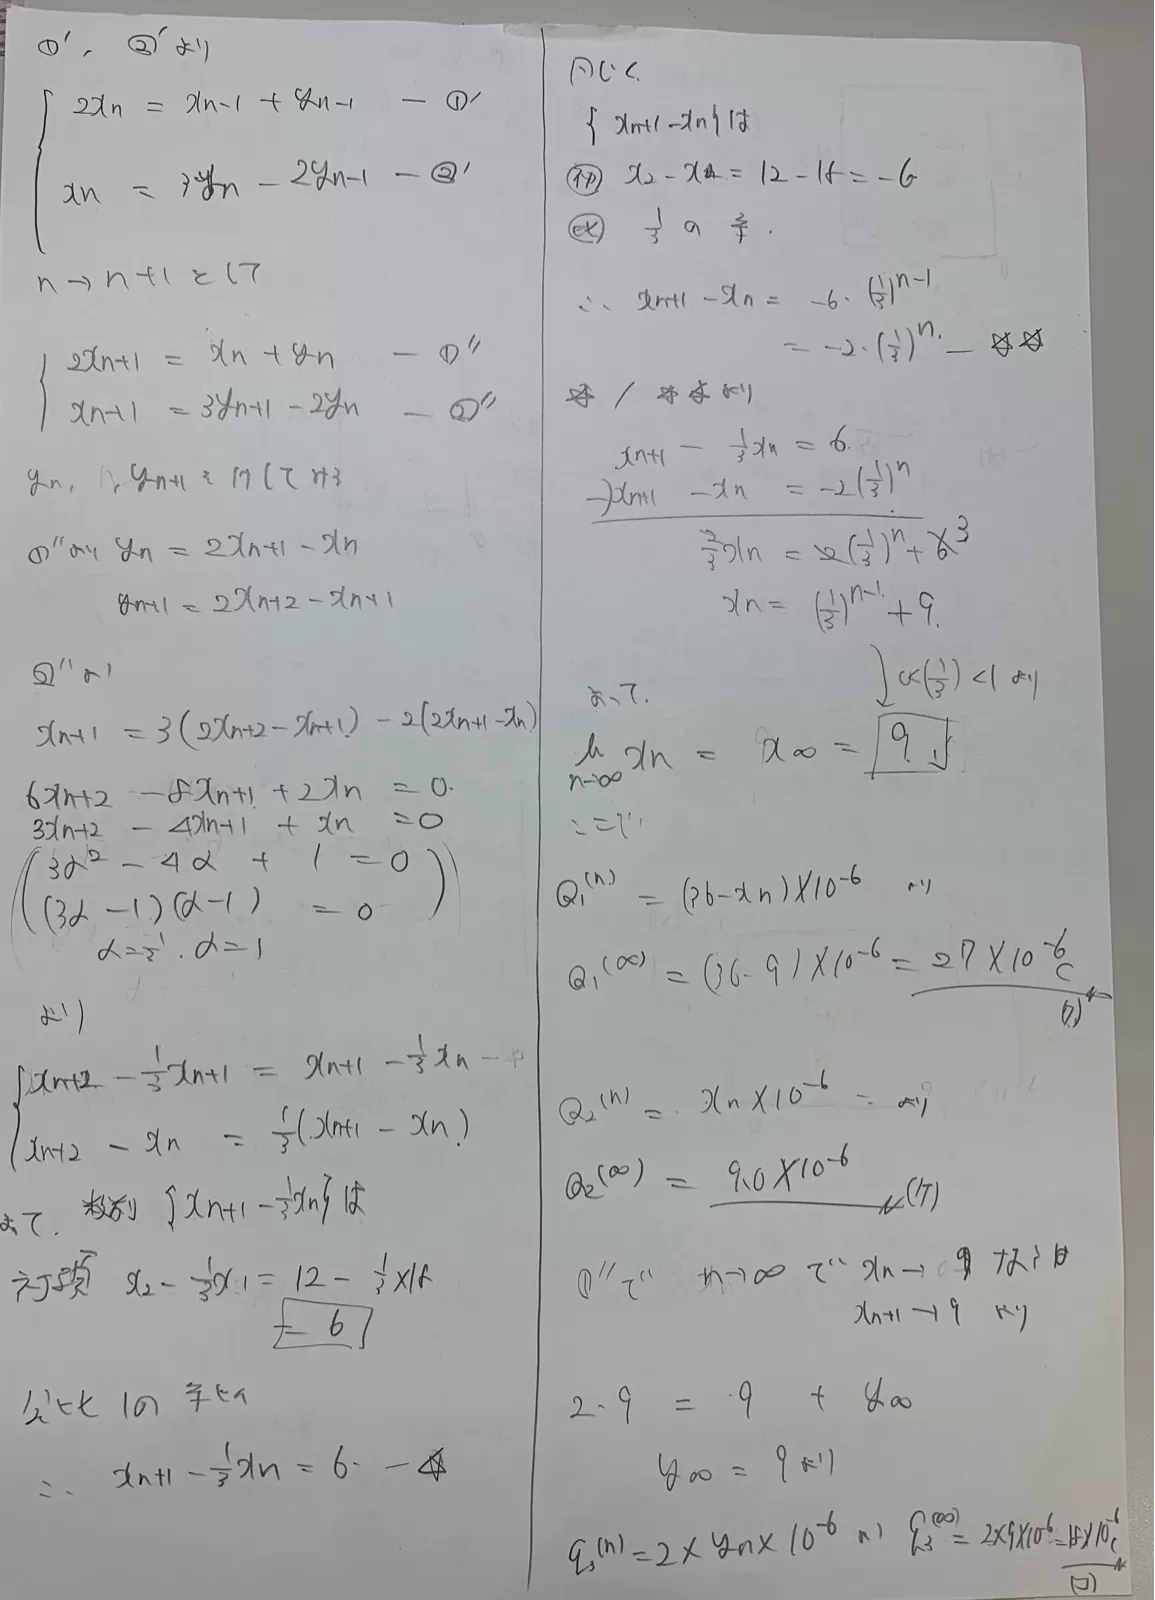 ①', ②' より
2xn = xn-1 + yn-1 - ①'
xn = 3yn - 2yn-1 - ②'
n → n+1 として
2xn+1 = xn + yn - ①''
xn+1 = 3yn+1 - 2yn - ②''
yn, yn+1 を 消して
①''より yn = 2xn+1 - xn
yn+1 = 2xn+2 - xn+1
②''より
xn+1 = 3(2xn+2 - xn+1) - 2(2xn+1 - xn)
6xn+2 - 8xn+1 + 2xn = 0.
3xn+2 - 4xn+1 + xn = 0
(3α² - 4α + 1 = 0
(3α - 1)(α - 1) = 0)
α = 1/3. α = 1
より
xn+2 - 1/3 xn+1 = xn+1 - 1/3 xn
xn+2 - xn = 1/3 (xn+1 - xn)
よって. 数列 {xn+1 - 1/3 xn} は
初項 x2 - 1/3 x1 = 12 - 1/3 × 18
= 6
公比 1の 等比
∴ xn+1 - 1/3 xn = 6. - ☆
同じく
{xn+1 - xn} は
初 x2 - x1 = 12 - 18 = -6
比 1/3 の 等.
∴ xn+1 - xn = -6・(1/3)^n-1
= -2・(1/3)^n. - ☆☆
☆, ☆☆より
xn+1 - 1/3 xn = 6.
-) xn+1 - xn = -2(1/3)^n
2/3 xn = 2(1/3)^n + 6 3
xn = (1/3)^n-1 + 9.
0<(1/3)<1 より
よって.
lim n→∞ xn = x∞ = 9
ここで
Q1^(n) = (36 - xn) × 10^-6 より
Q1^(∞) = (36 - 9) × 10^-6 = 27 × 10^-6 C
Q2^(n) = xn × 10^-6 より
Q2^(∞) = 9.0 × 10^-6
①''で n → ∞ で xn → 9 ならば
xn+1 → 9 より
2・9 = 9 + y∞
y∞ = 9 より
q3^(n) = 2 × yn × 10^-6 より q3^(∞) = 2×9×10^-6 = 18×10^-6 C